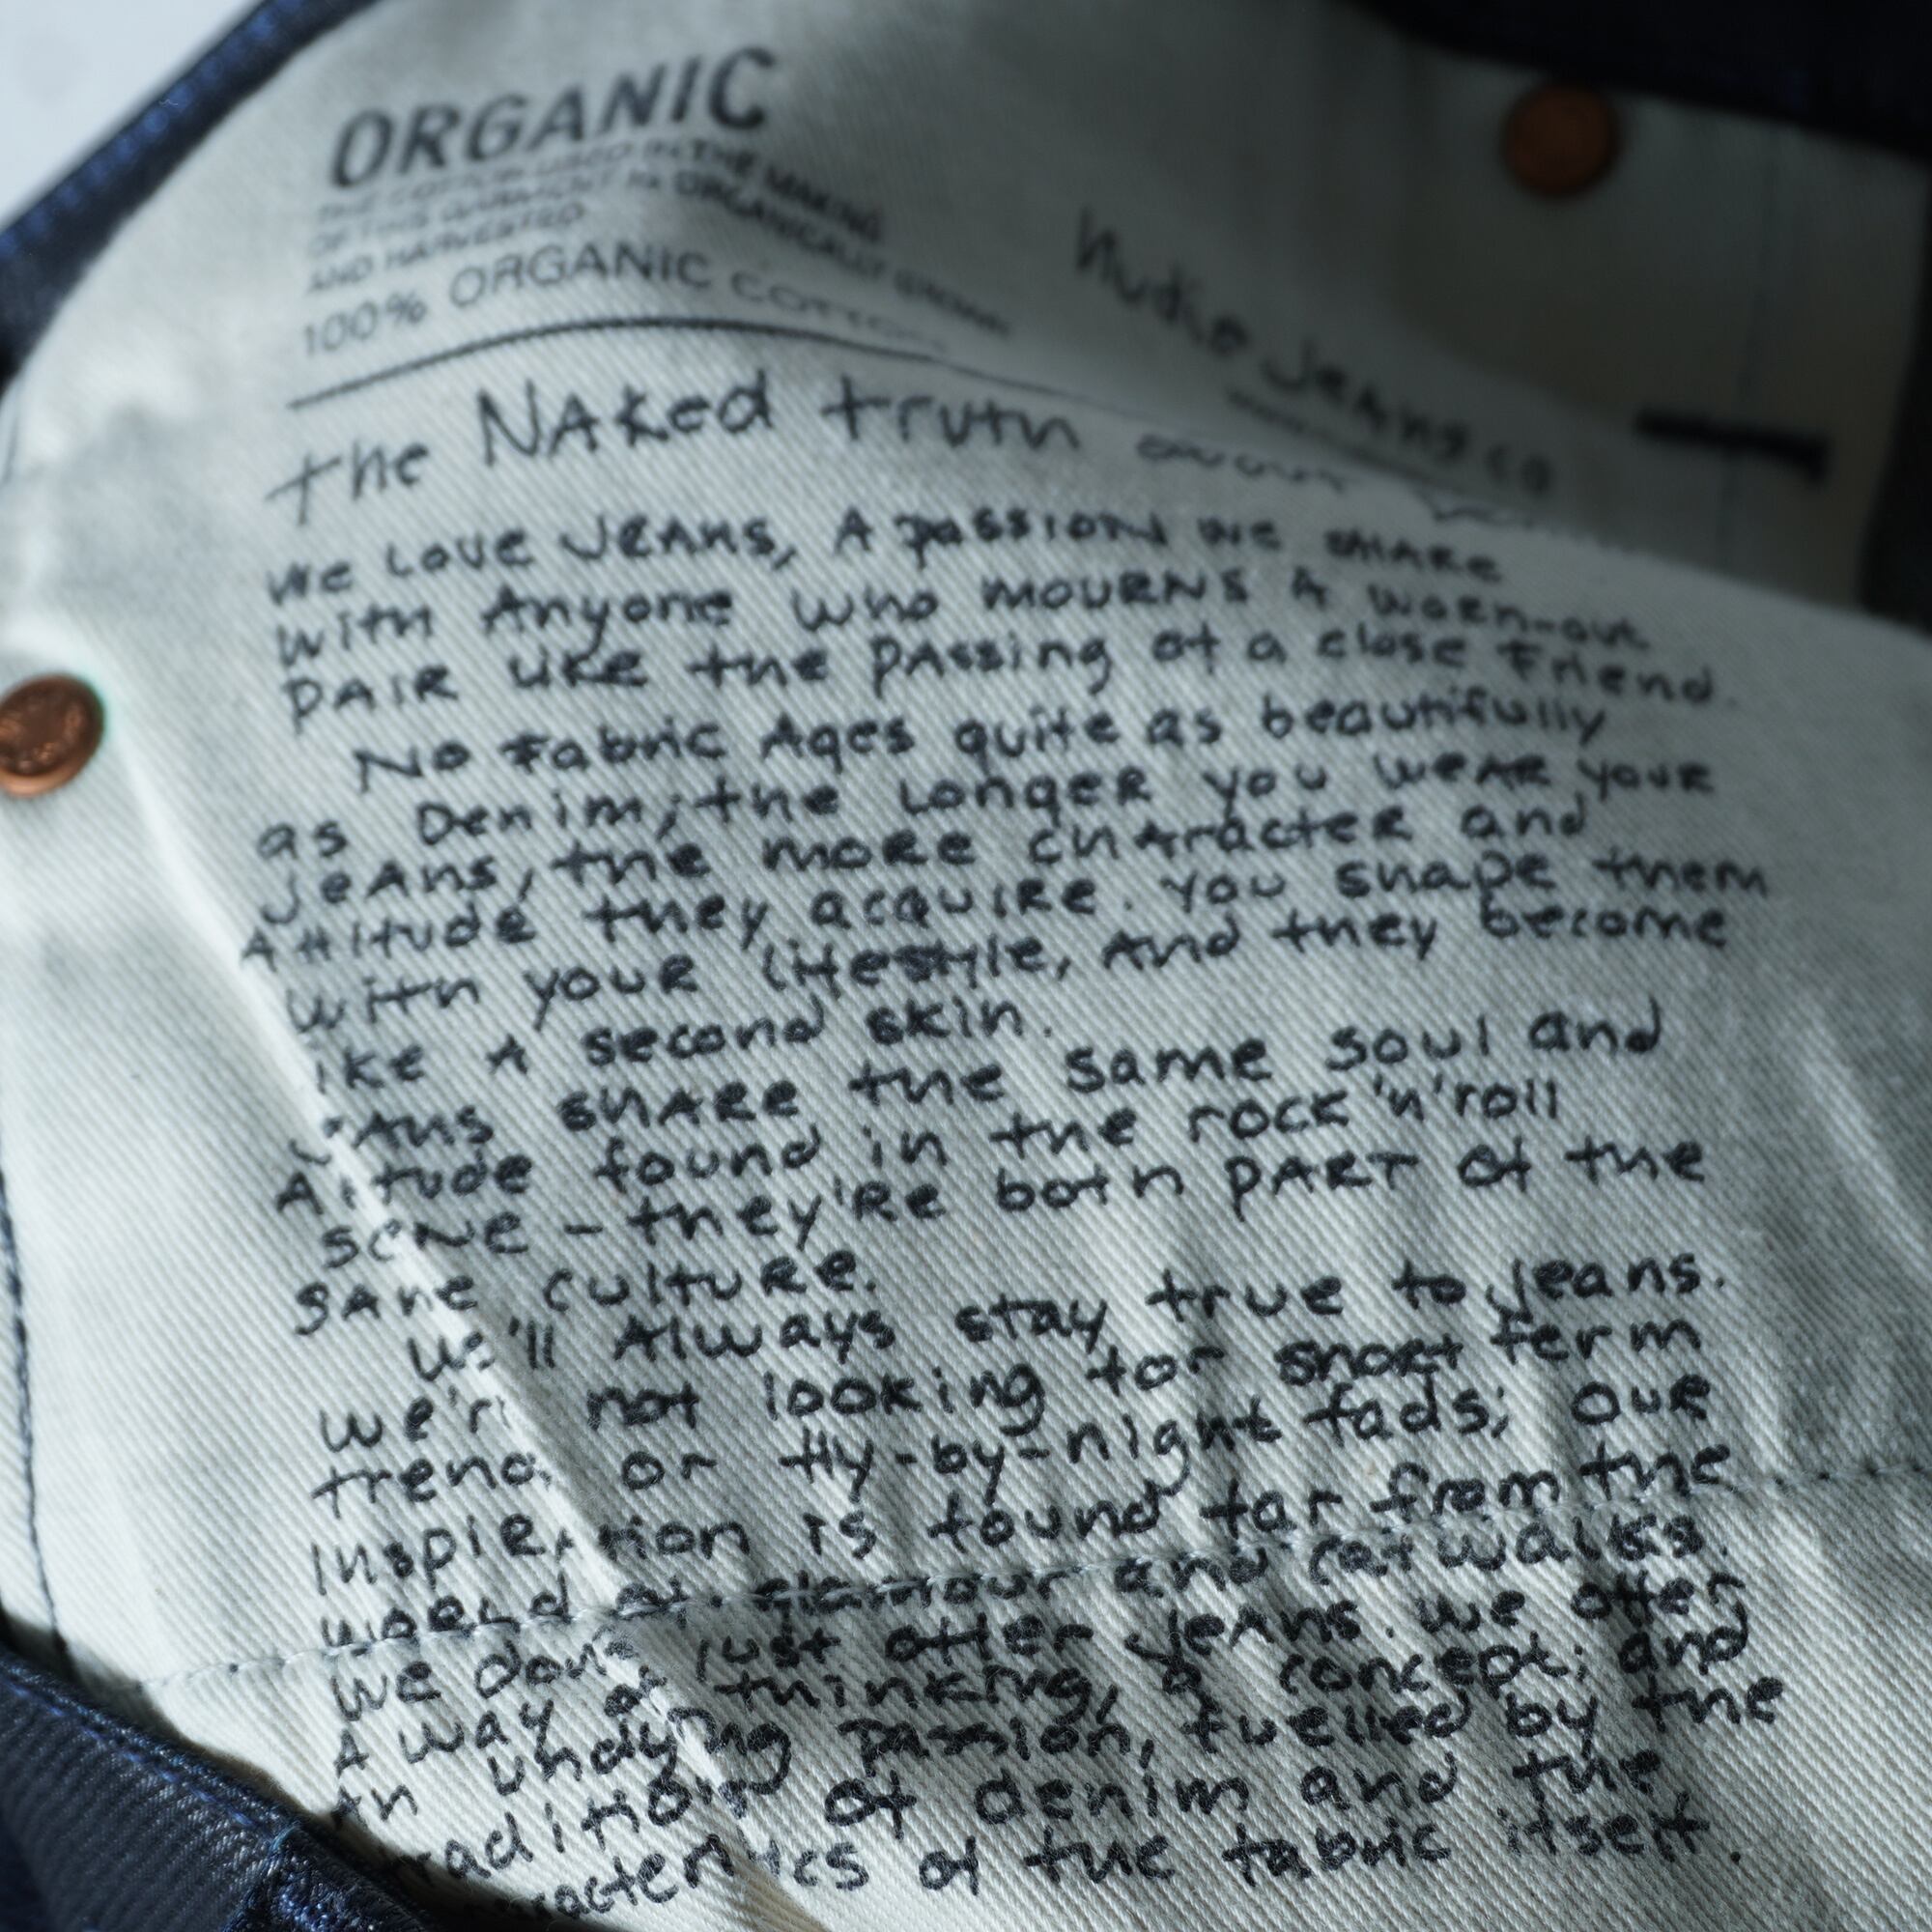 ORGANIC
THE COTTON USED IN THE MAKING
OF THIS GARMENT IS ORGANICALLY GROWN
AND HARVESTED
100% ORGANIC COTTON
Nudie Jeans co
The Naked truth about
We Love Jeans, A passion we share
with Anyone who mourns A worn-out
pair like the passing of a close friend.
No fabric Ages quite as beautifully
as Denim; the Longer you wear your
Jeans, the more character and
Attitude they acquire. You shape them
with your lifestyle, and they become
like A second skin.
Jeans share the same soul and
Attitude found in the rock'n'roll
scene - they're both part of the
same culture.
We'll Always stay true to jeans.
We're not looking for short term
trends or fly-by-night fads; our
inspiration is found far from the
world of glamour and catwalks.
We don't just offer jeans. we offer
A way of thinking, a concept; and
An undying passion, fuelled by the
traditions of denim and the
characteristics of the fabric itself.